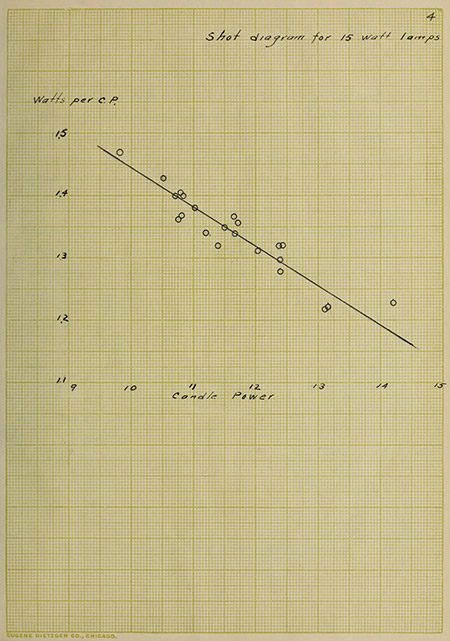 4
Shot diagram for 15 watt lamps
Watts per C.P.
1.5
1.4
1.3
1.2
1.1
9 10 11 12 13 14 15
Candle Power
EUGENE DIETZGEN CO., CHICAGO.